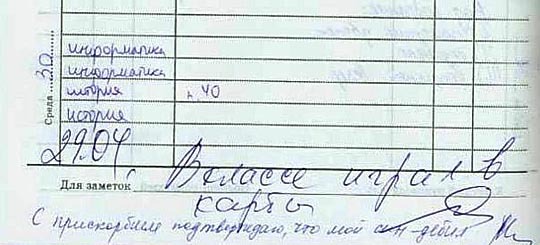 Среда 30
информатика
информатика
история п. 40
история
29.04
Для заметок
В классе играл в
карты
С прискорбием подтверждаю, что мой сын - дебил